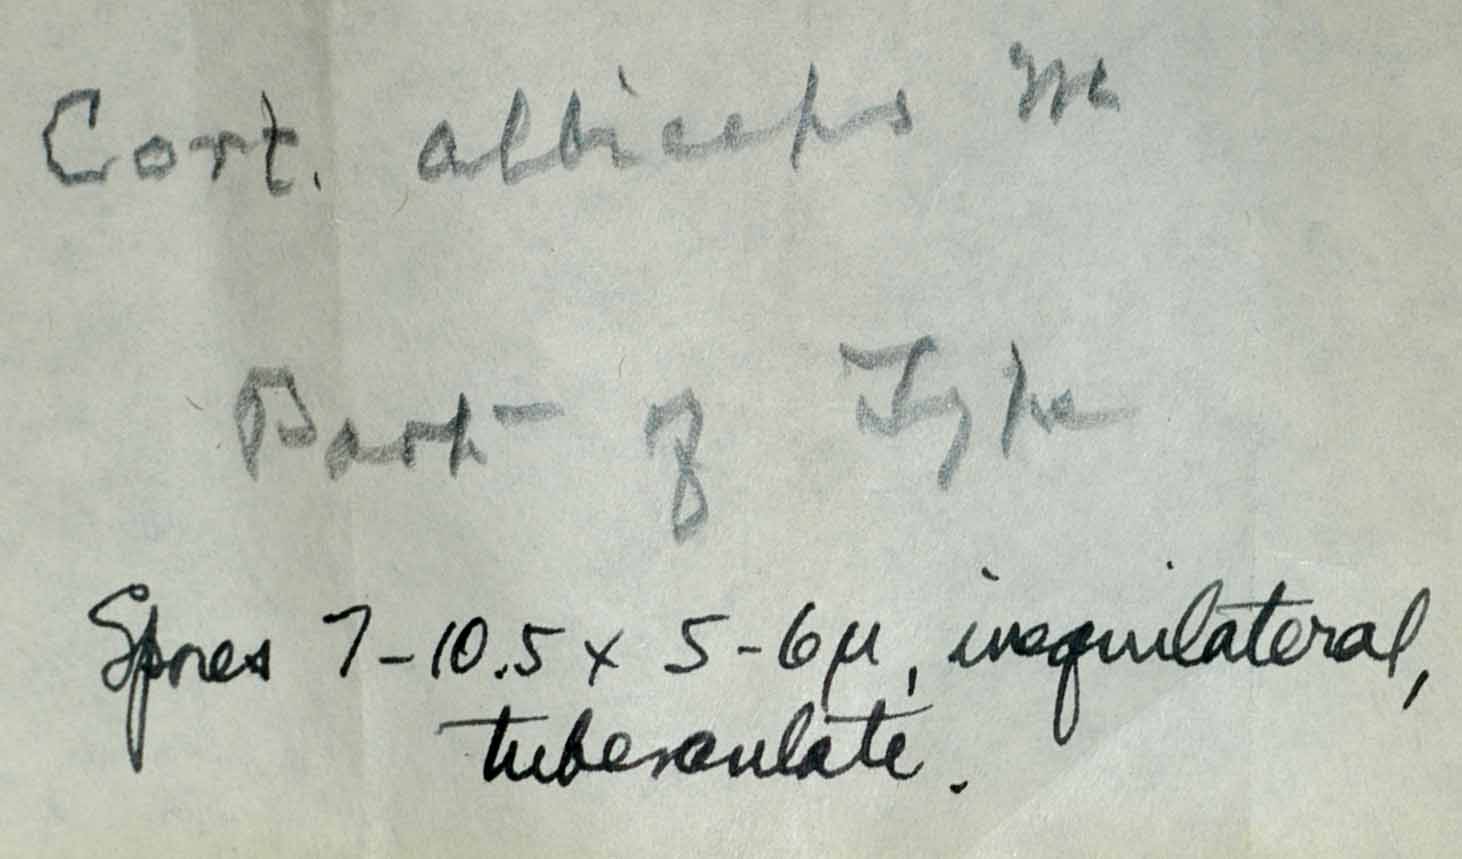 Cort. albiceps
Part of Type
Spores 7-10.5 x 5-6µ, inequilateral,
tuberculate.